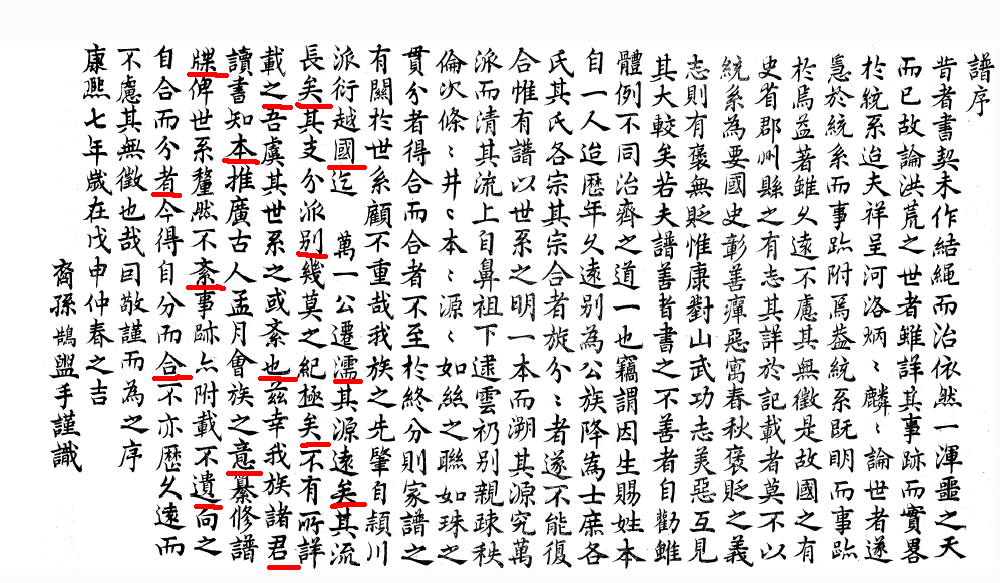 譜序
昔者書契未作結繩而治依然一渾噩之天
而已故論洪荒之世者雖詳其事跡而實畧
於統系迨夫祥呈河洛炳〻麟〻論世者遂
憲於統系而事跡附焉葢統系既明而事跡
於焉益著雖乆遠不慮其無徵是故國之有
史省郡州縣之有志其詳於記載者莫不以
統系為要國史彰善癉惡寓春秋褒貶之義
志則有褒無貶惟康對山武功志美惡互見
其大較矣若夫譜善者書之不善者自勸雖
體例不同治齊之道一也竊謂因生賜姓本
自一人迨歷年乆遠别為公族降為士庶各
氏其氏各宗其宗合者旋分〻者遂不能復
合惟有譜以世系之明一本而溯其源究萬
派而清其流上自鼻祖下逮雲礽别親踈秩
倫次條〻井〻本〻源〻如絲之聯如珠之
貫分者得合而合者不至於終分則家譜之
有關於世系顧不重哉我族之先肇自潁川
派衍越國迄 萬一公遷濡其源遠矣其流
長矣其支分派别幾莫之紀極矣不有所詳
載之吾虞其世系之或紊也茲幸我族諸君
讀書知本推廣古人孟月會族之意纂修譜
牒俾世系釐然不紊事跡亦附載不遺向之
自合而分者今得自分而合不亦歷乆遠而
不慮其無徵也哉囙敬謹而為之序
康熙七年歲在戊申仲春之吉
裔孫鵠盥手謹識